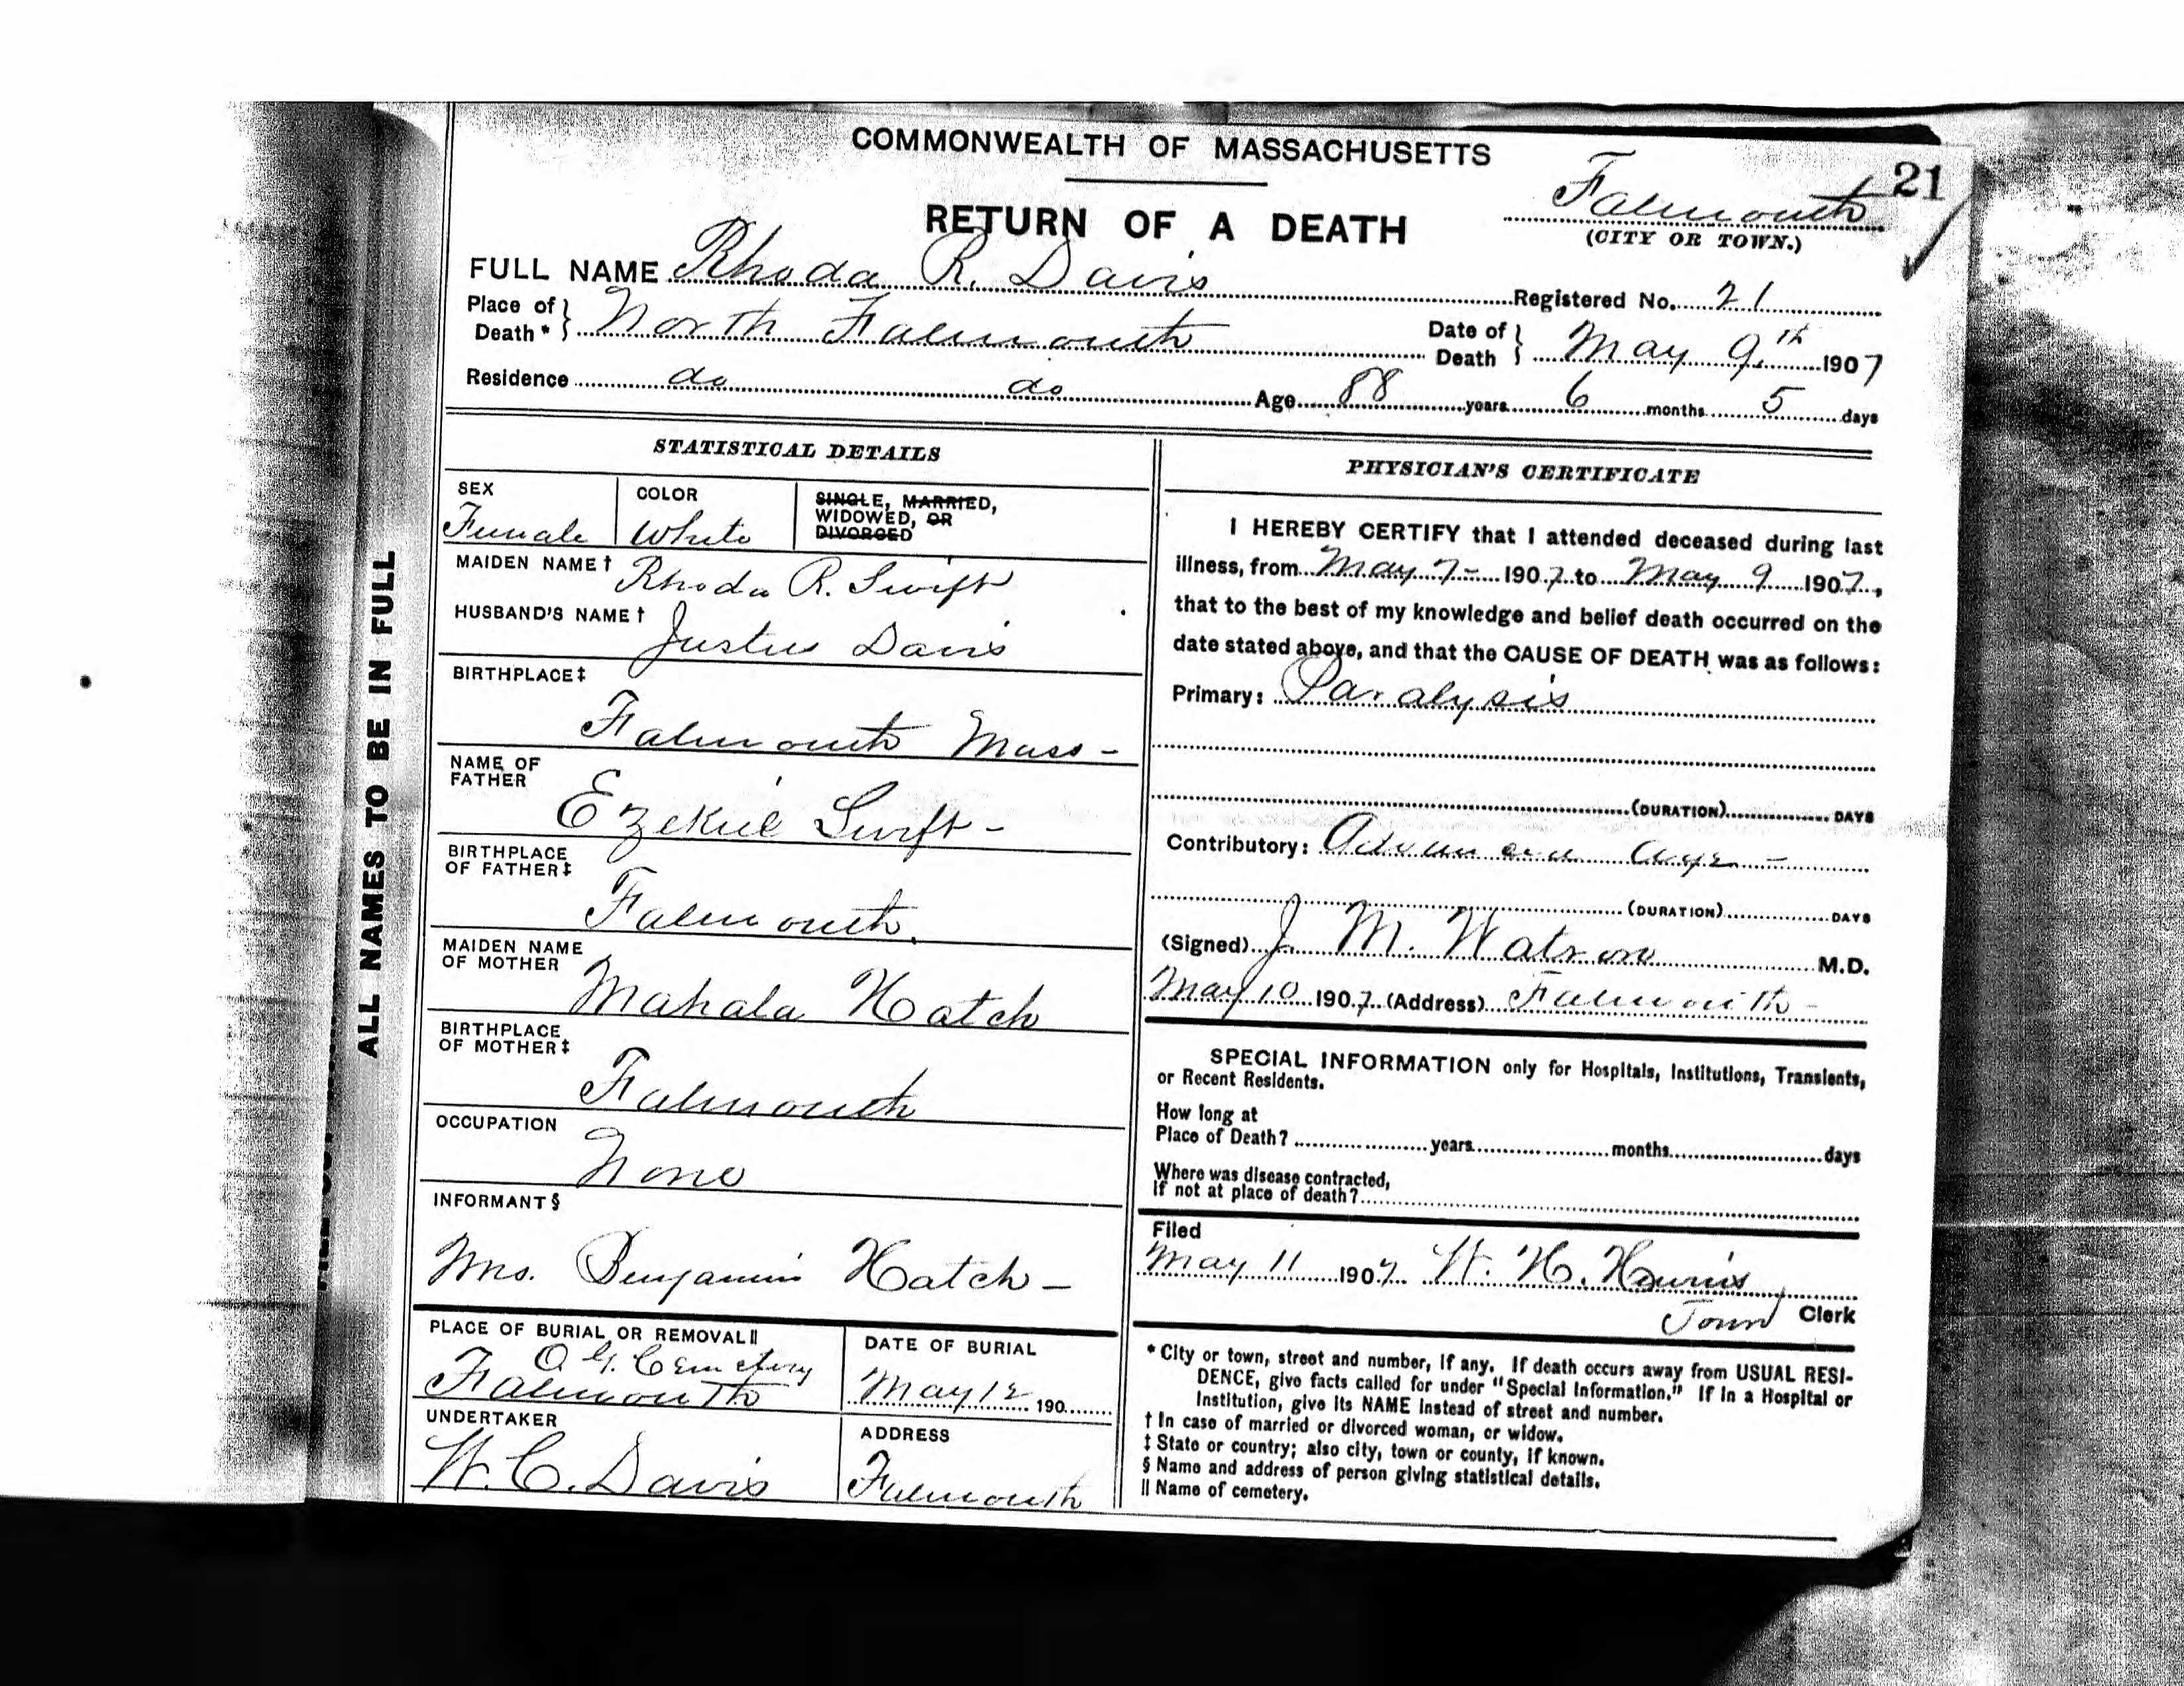 COMMONWEALTH OF MASSACHUSETTS
21
Falmouth
(CITY OR TOWN.)
RETURN OF A DEATH
FULL NAME Rhoda R. Davis Registered No. 21
Place of Death * North Falmouth Date of Death May 9th 1907
Residence do do Age 88 years 6 months 5 days
ALL NAMES TO BE IN FULL
STATISTICAL DETAILS
SEX
Female
COLOR
White
SINGLE, MARRIED,
WIDOWED, OR
DIVORCED
MAIDEN NAME † Rhoda R. Swift
HUSBAND'S NAME † Justus Davis
BIRTHPLACE ‡
Falmouth Mass -
NAME OF
FATHER
Ezekiel Swift -
BIRTHPLACE
OF FATHER ‡
Falmouth.
MAIDEN NAME
OF MOTHER
Mahala Hatch
BIRTHPLACE
OF MOTHER ‡
Falmouth
OCCUPATION
None
INFORMANT §
Mrs. Benjamin Hatch -
PLACE OF BURIAL OR REMOVAL ||
Cemetery
Falmouth
DATE OF BURIAL
May 12 190
UNDERTAKER
W. C. Davis
ADDRESS
Falmouth
PHYSICIAN'S CERTIFICATE
I HEREBY CERTIFY that I attended deceased during last
illness, from May 7 - 1907 to May 9 1907,
that to the best of my knowledge and belief death occurred on the
date stated above, and that the CAUSE OF DEATH was as follows:
Primary: Paralysis
(DURATION) DAYS
Contributory: Advanced age -
(DURATION) DAYS
(Signed) J. M. Watson M.D.
May 10 1907 (Address) Falmouth -
SPECIAL INFORMATION only for Hospitals, Institutions, Transients,
or Recent Residents.
How long at
Place of Death? years months days
Where was disease contracted,
If not at place of death?
Filed
May 11 1907 W. H.
Town Clerk
* City or town, street and number, if any. If death occurs away from USUAL RESI-
DENCE, give facts called for under "Special Information." If in a Hospital or
Institution, give its NAME instead of street and number.
† In case of married or divorced woman, or widow.
‡ State or country; also city, town or county, if known.
§ Name and address of person giving statistical details.
|| Name of cemetery.